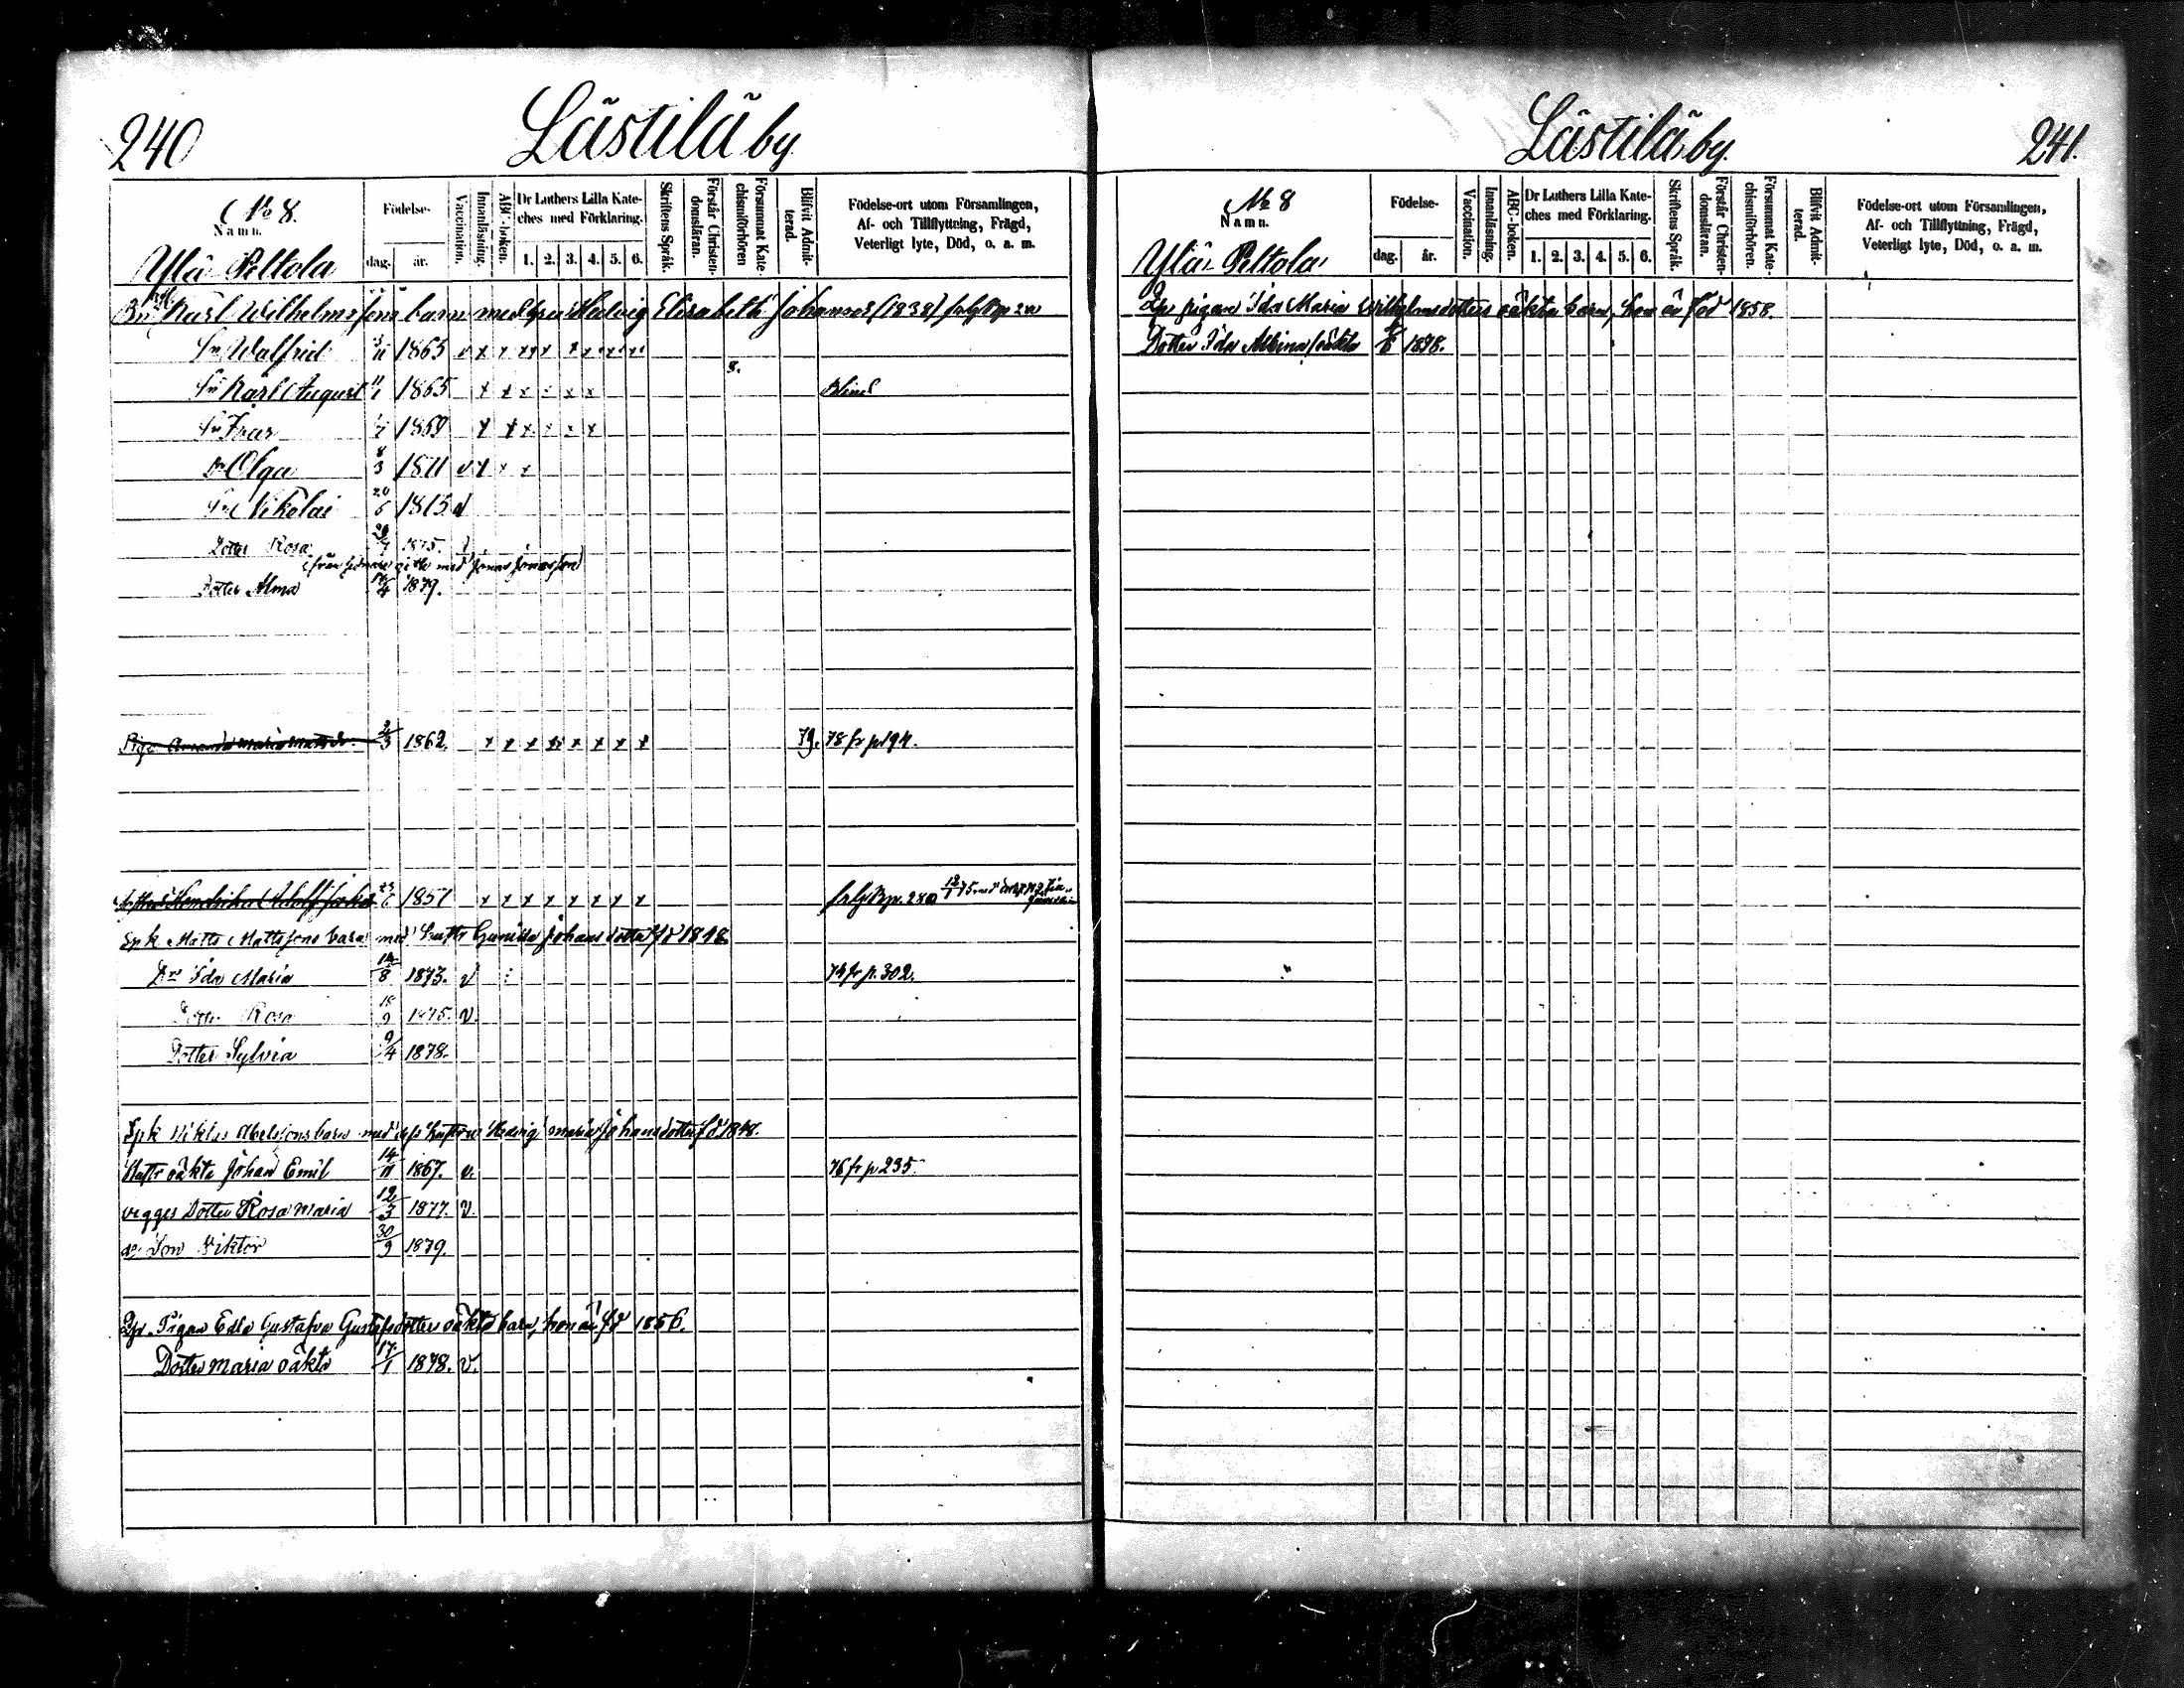 240
Lästilä by
No 8.
Namn.
Ylä Peltola
Födelse-
dag.
år.
Vaccination.
Innanläsning.
ABC-boken.
Dr Luthers Lilla Kate-
ches med Förklaring.
1. 2. 3. 4. 5. 6.
Skriftens Språk.
Förstår Christen-
domsläran.
Försummat Kate-
chismiförhören
Blifvit Admit-
terad.
Födelse-ort utom Församlingen,
Af- och Tillflyttning, Frägd,
Veterligt lyte, Död, o. a. m.
Karl Wilhelmssons barn med Hedvig Elisabeth Johansd (1838)
Sn Walfrid 1865 v x x x x x x x x x
8.
Sn Karl August 11/1 1865 x x x x x x Blind
Sn Ivar 1869 x x x x x x
Dr Olga 8/3 1871 v x x x
Sn Nikolai 20/6 1873 v
Dotter Rosa 1875. v
med Jonas Jonasson
Dotter Alma 1879.
Piga Amanda Maria 2/3 1862. x x x x x x x x 79. 78 fr p 194.
Hendrik Adolf 1851 x x x x x x x x
Spk Matts Mattsons barn med hustr Gunilla Johansdotter fd 1848
Dr Ida Maria 14/8 1873. v 74 fr p. 302.
Dotter Rosa 18/9 1875. v.
Dotter Sylvia 9/4 1878.
Spk Niklas Abelssons barn med dess hustru Hedvig Maria Johansdotter fd 1848.
Hustr oäkta Johan Emil 14/11 1867. v. 76 fr p 235.
begges Dotter Rosa Maria 12/3 1877. v
do Son Viktor 30/9 1879.
Pigan Edla Gustafva Gustafsdotters oäkta barn, hon är fd 1856.
Dotter Maria oäkta 17/1 1878. v.
Lästilä by.
241.
No 8
Namn.
Ylä Peltola
Födelse-
dag.
år.
Vaccination.
Innanläsning.
ABC-boken.
Dr Luthers Lilla Kate-
ches med Förklaring.
1. 2. 3. 4. 5. 6.
Skriftens Språk.
Förstår Christen-
domsläran.
Försummat Kate-
chismiförhören.
Blifvit Admit-
terad.
Födelse-ort utom Församlingen,
Af- och Tillflyttning, Frägd,
Veterligt lyte, Död, o. a. m.
pigan Ida Maria Wilhelmsdotters oäkta barn, hon är född 1858.
Dotter Ida Albina oäkta 1878.